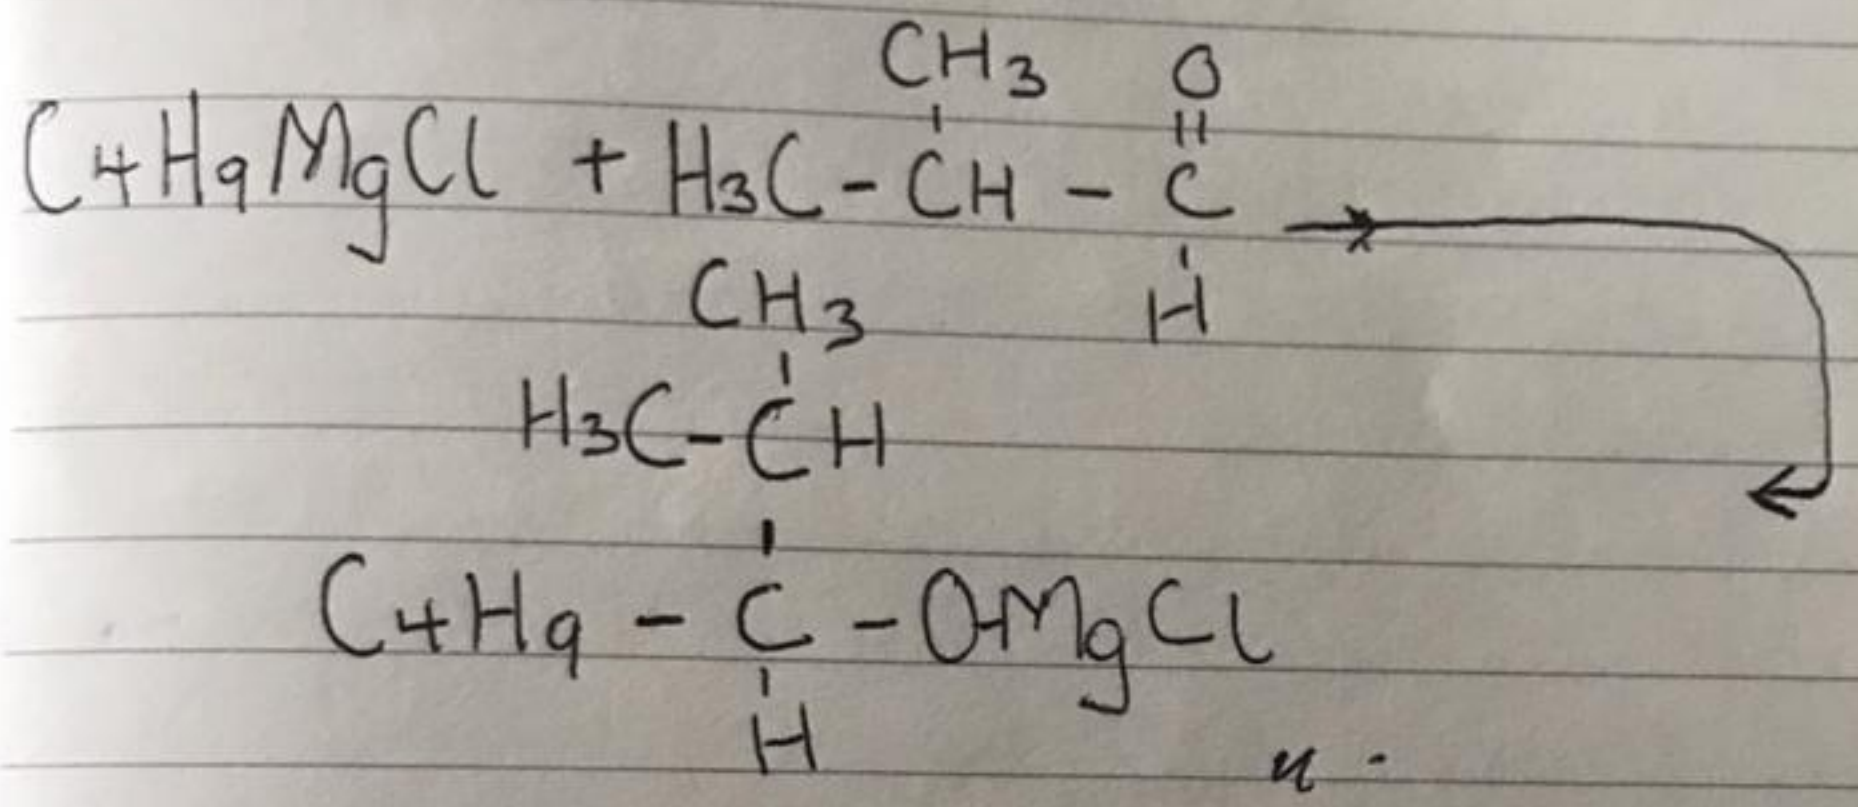 CH3 O
C4H9MgCl + H3C - CH - C
H
CH3
H3C - CH
C4H9 - C - OMgCl
H